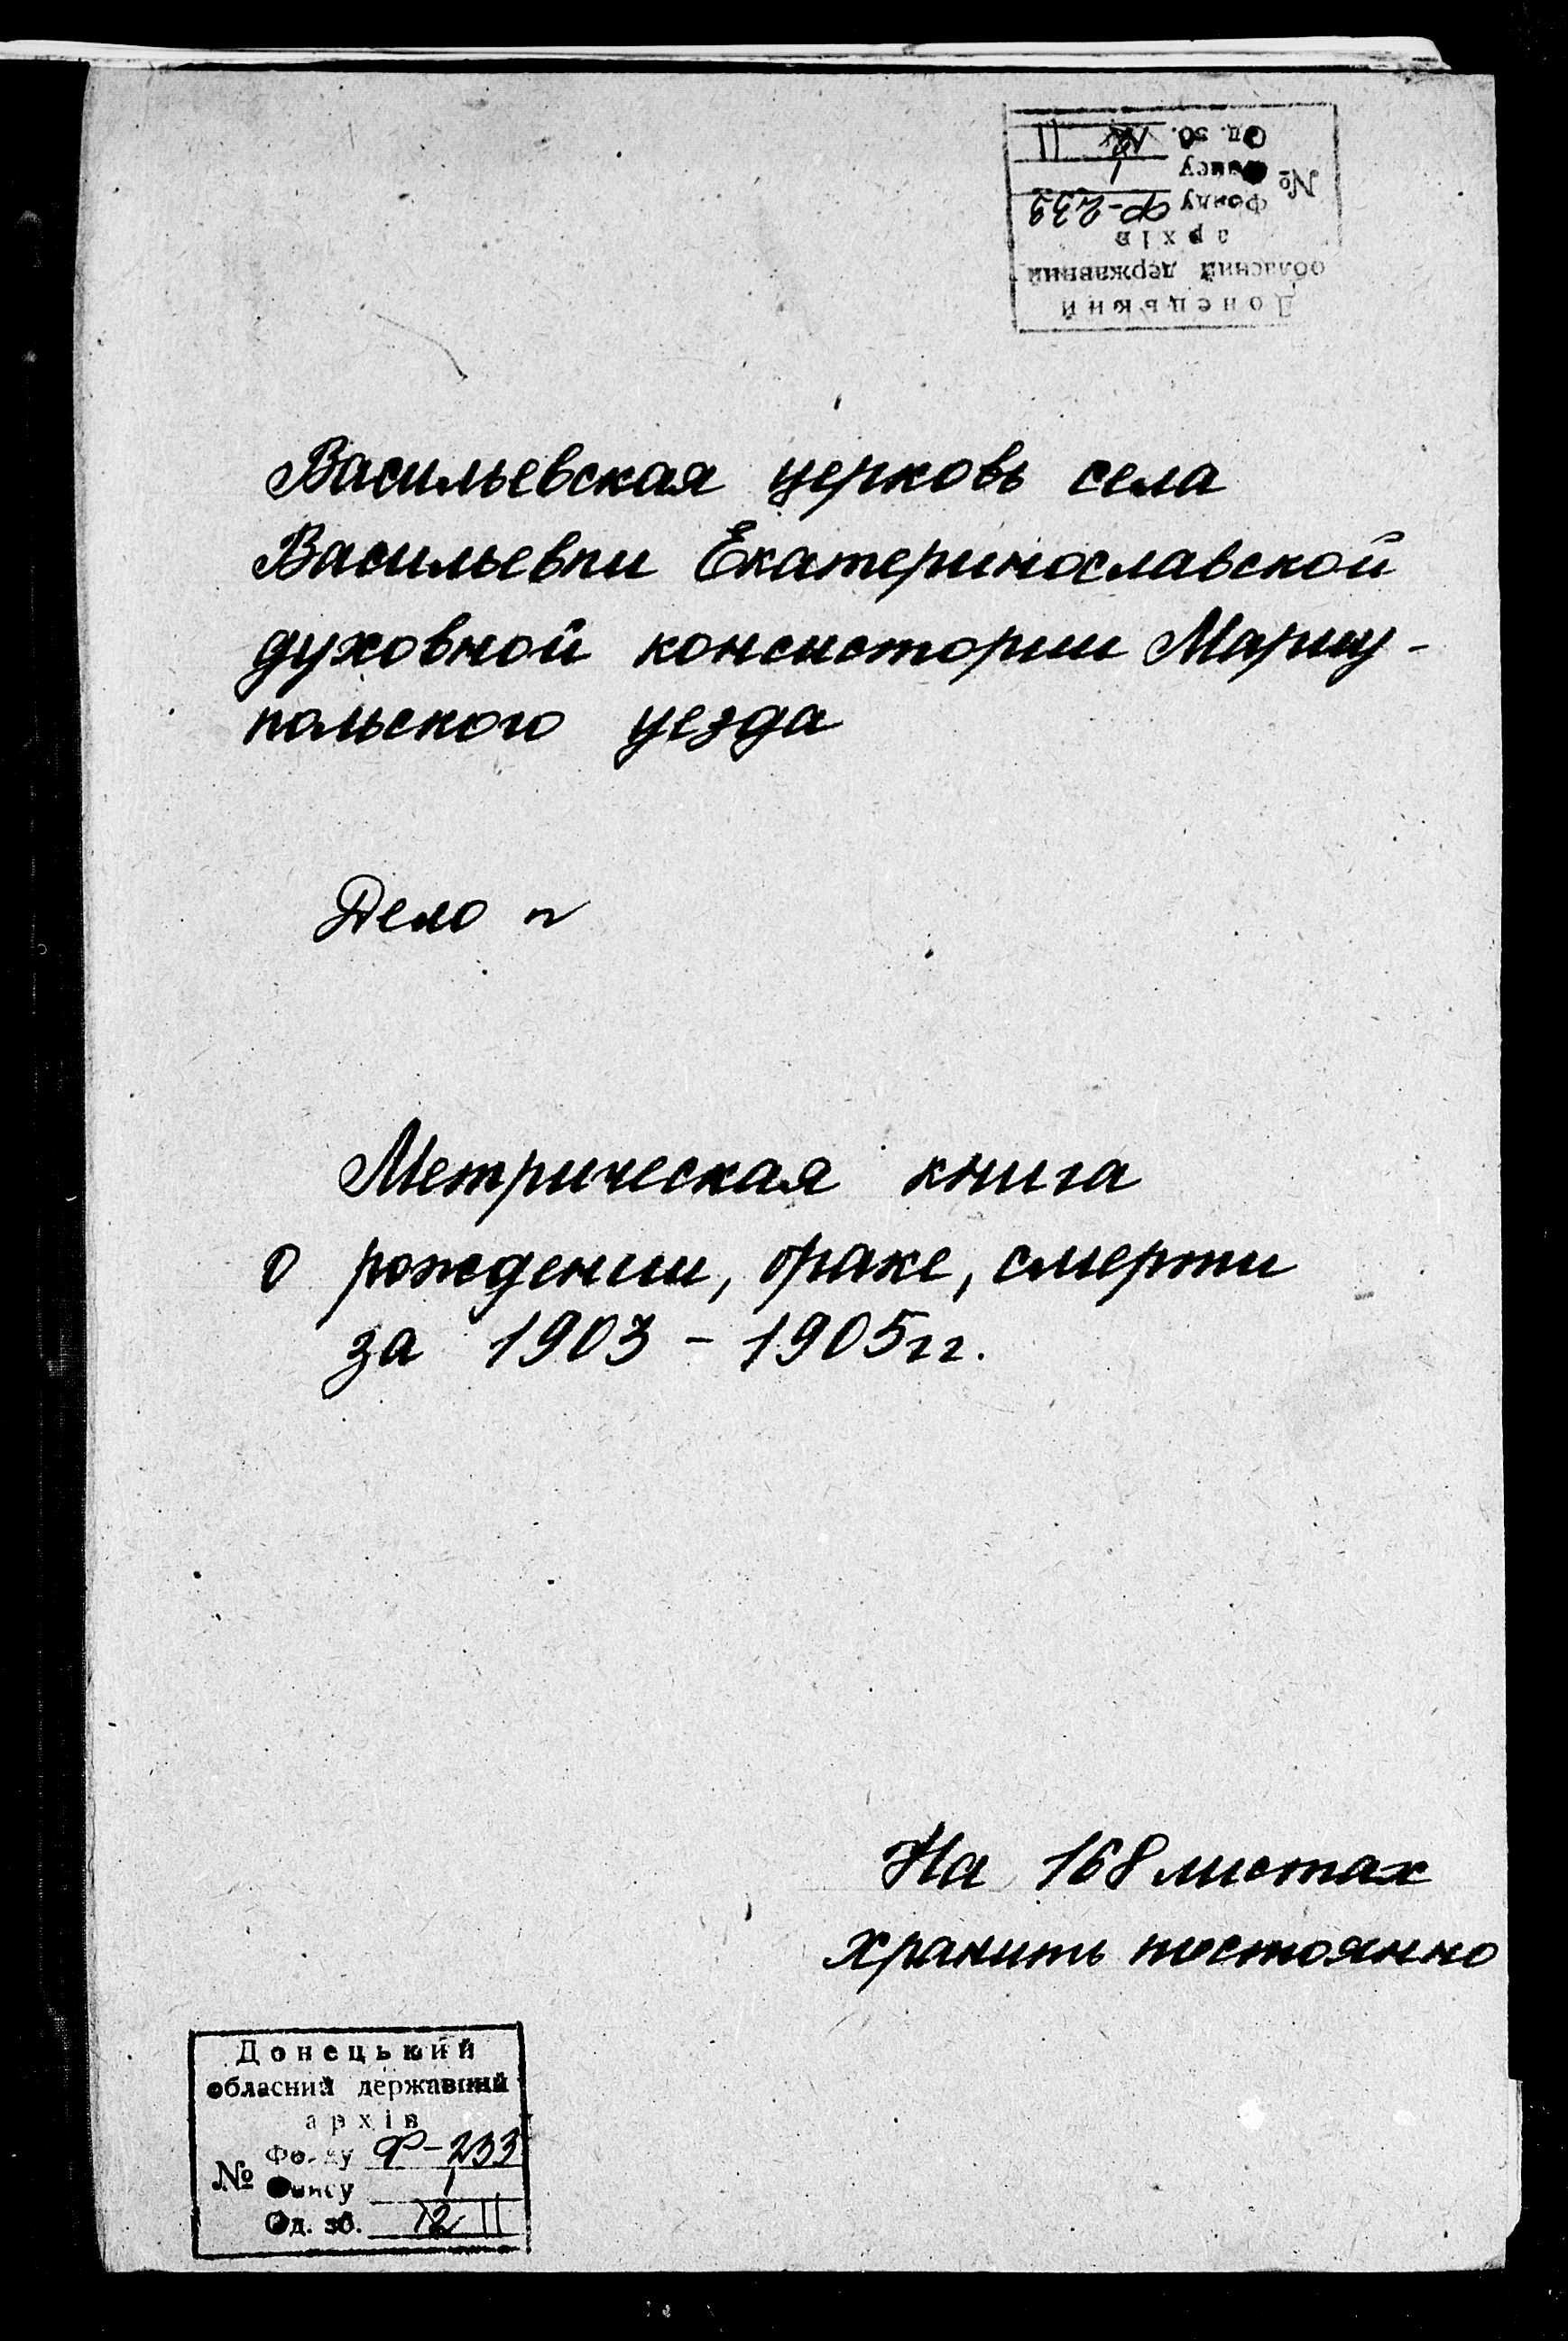 Донецький
обласний державний
архів
№
Фонду Ф-233
Опису 1
Од. зб. 11
Васильевская церковь села
Васильевки Екатеринославской
духовной консистории Мариу-
польского уезда
Дело №
Метрическая книга
о рождении, браке, смерти
за 1903 - 1905 гг.
На 168 листах
хранить постоянно
Донецький
обласний державний
архів
№
Фонду Ф-233
Опису 1
Од. зб. 12 11